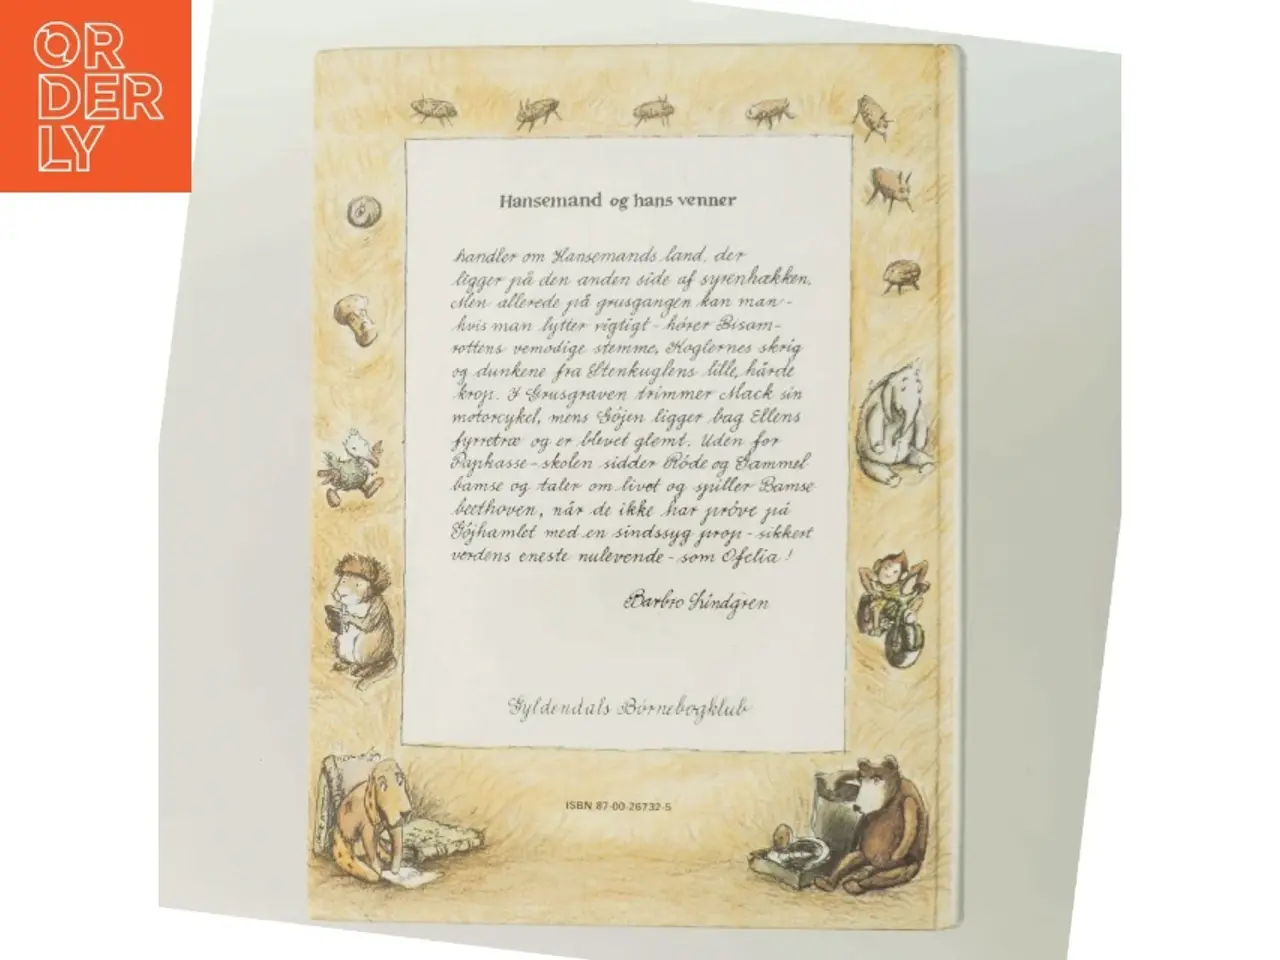 OR
DER
LY
Hansemand og hans venner
handler om Hansemands land, der
ligger på den anden side af syrenhækken.
Men allerede på grusgangen kan man -
hvis man lytter rigtigt - hører Bisam-
rottens vemodige stemme, Koglernes skrig
og dunkene fra Stenkuglens lille, hårde
krop. I Grusgraven trimmer Mack sin
motorcykel, mens Göjen ligger bag Ellens
fyrretræ og er blevet glemt. Uden for
Papkasse-skolen sidder Röde og Gammel
bamse og taler om livet og spiller Bamse
beethoven, når de ikke har pröve på
Göjhamlet med en sindssyg prop - sikkert
verdens eneste nulevende - som Ofelia!
Barbro Lindgren
Gyldendals Börnebogklub
ISBN 87-00-26732-5